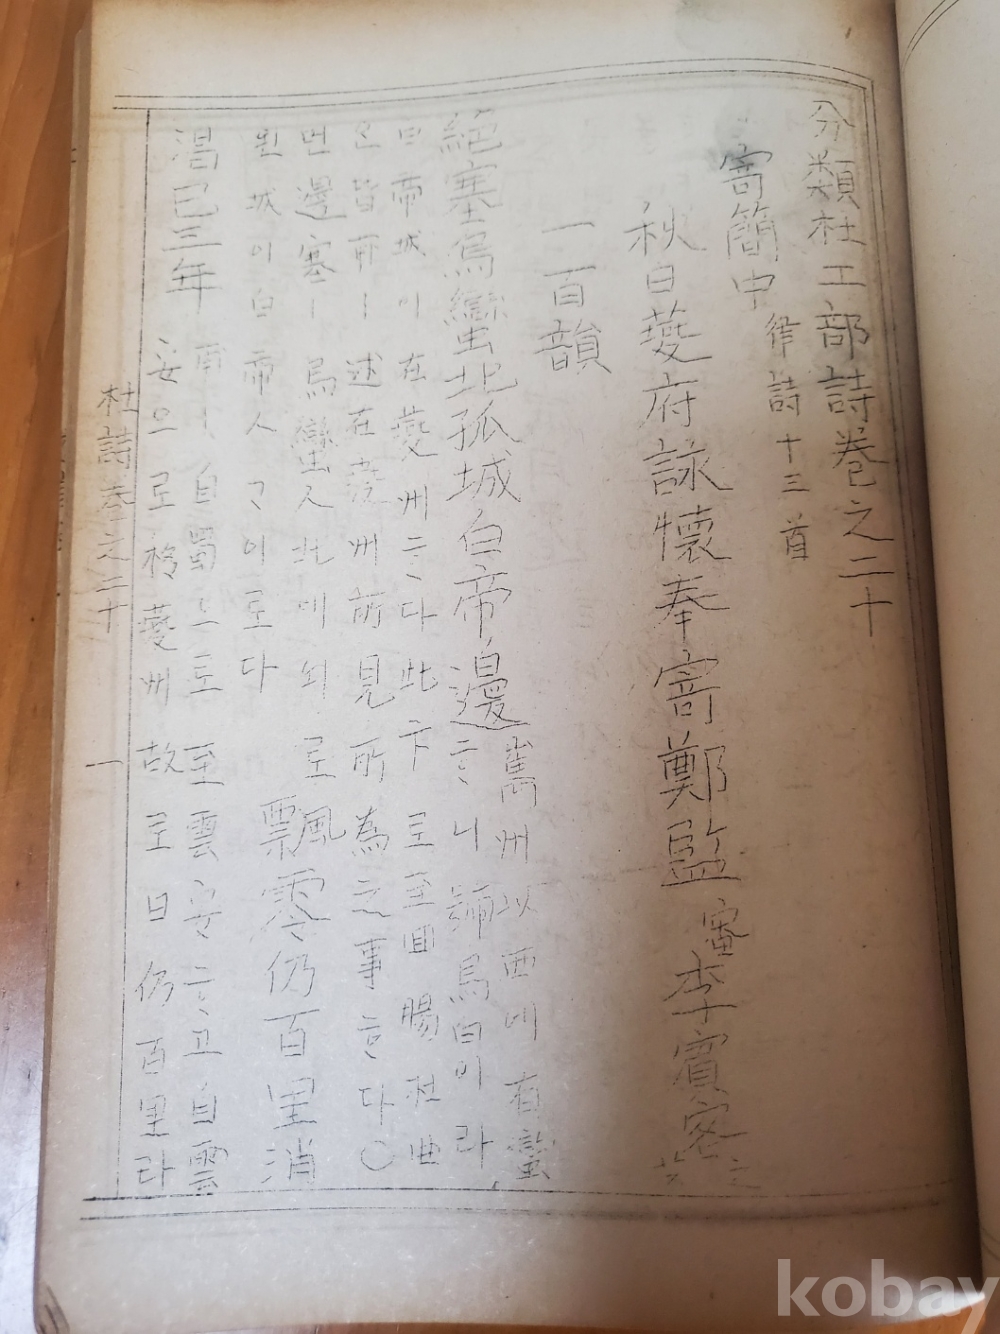 分類杜工部詩巻之二十
寄簡中 律詩十三首
秋日夔府詠懷奉寄鄭監審李賓客之芳
一百韻
絕塞烏蠻北孤城白帝邊
嶲州以西에有蠻
ᄒᆞ니 號烏白이라
白帝城이在夔州ᄒᆞ다此下로至回腸杜曲
皆甫ㅣ述在夔州所見所為之事ᄒᆞ다○
邊塞ㅣ烏蠻人北에 로
城이白帝人ᄀᆞ이로다
飄零仍百里消
渴已三年
甫ㅣ自蜀으로至雲安ᄒᆞ고自雲
安으로移夔州故로曰仍百里라
杜詩巻之二十
一
kobay